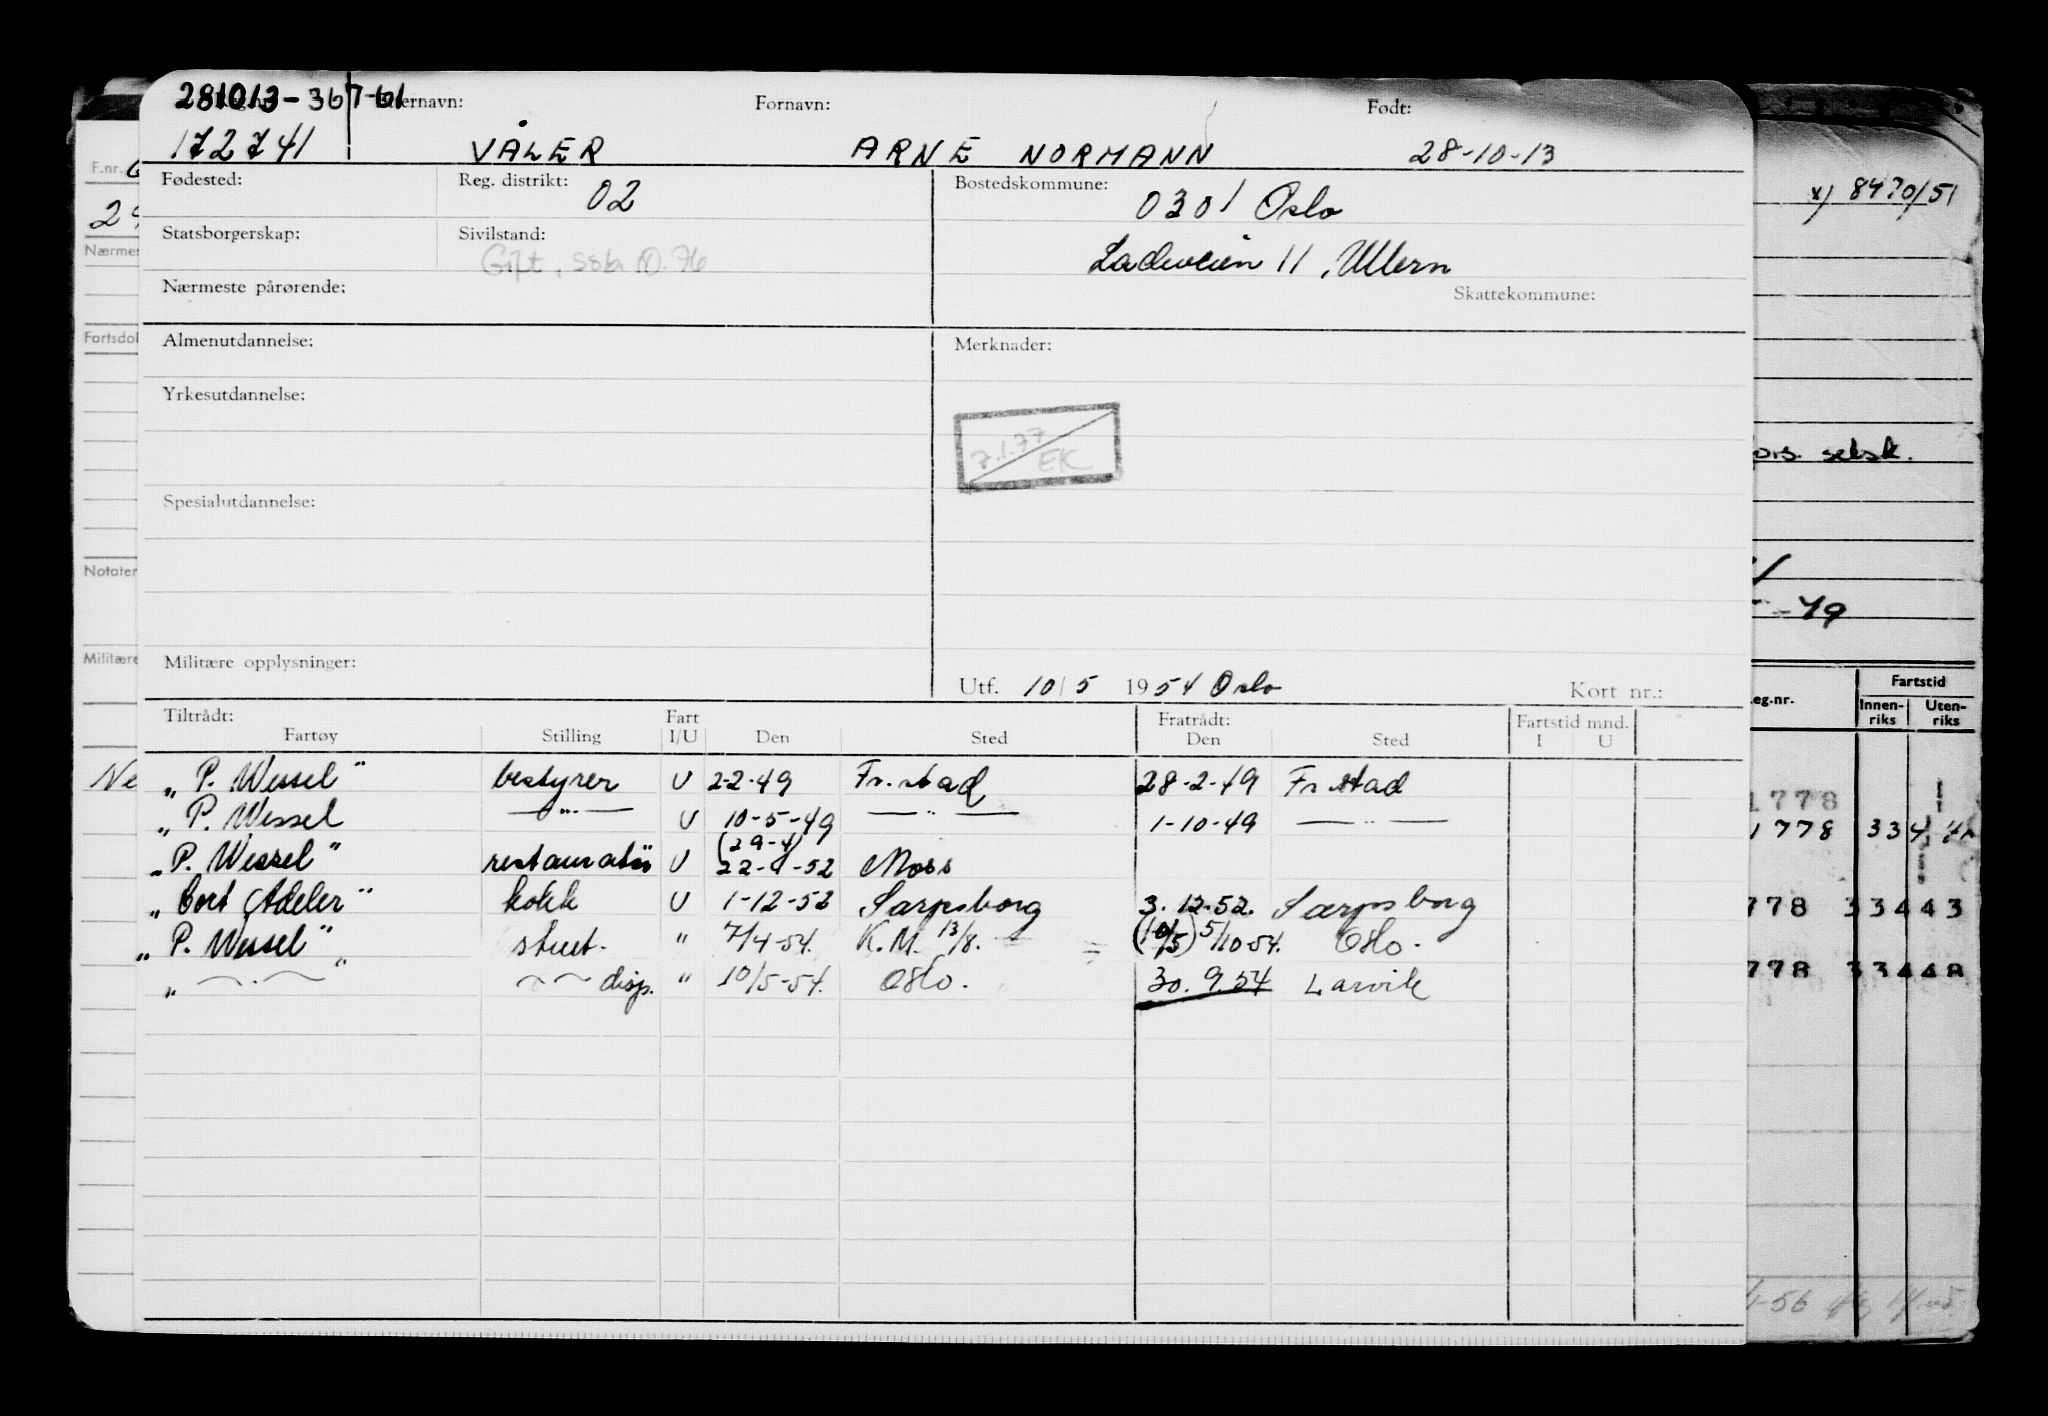 281013-36767 Etternavn: Fornavn: Født:
172741 VÅLER ARNE NORMANN 28-10-13
Fødested: Reg. distrikt: 02 Bostedskommune: 0301 Oslo
Statsborgerskap: Sivilstand: Gift, ssb. 10.76 Ladeveien 11, Ullern
Nærmeste pårørende: Skattekommune:
Almenutdannelse: Merknader:
Yrkesutdannelse:
7.1.77 EK
Spesialutdannelse:
Militære opplysninger:
Utf. 10/5 1954 Oslo Kort nr.:
Tiltrådt: Fart Fratrådt: Fartstid mnd.
Fartøy Stilling I/U Den Sted Den Sted I U
„P. Wessel" bestyrer U 2-2-49 Fr.stad 28-2-49 Fr.stad
„P. Wessel —"— U 10-5-49 —"— 1-10-49 —"—
(29-4)
„P. Wessel" restauratør U 22-4-52 Moss
„Cort Adeler" kokk U 1-12-52 Sarpsborg 3.12.52. Sarpsborg
„P. Wessel" stuert. " 7/4-54. K.M. 13/8. = (10/5) 5/10-54. Oslo.
„ —"— " —"— disp. " 10/5-54. Oslo. 30.9.54 Larvik
F.nr.
Nærmes
Fartsdol
Notater
Militære
Ne
x) 8470/51
fors. selsk.
-49
eg.nr. Fartstid
Innen-riks Uten-riks
1778
1778 334
778 33443
778 33448